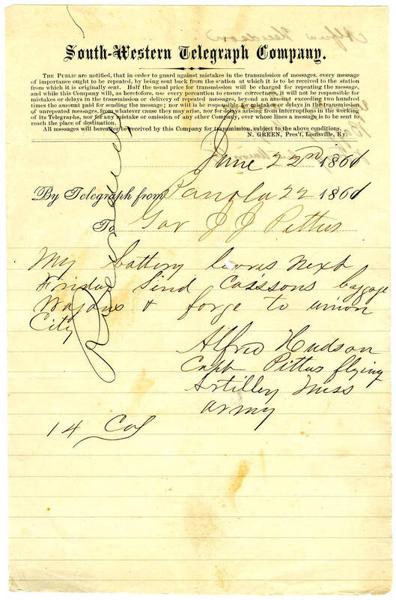 South-Western Telegraph Company.
The Public are notified, that in order to guard against mistakes in the transmission of messages, every message
of importance ought to be repeated, by being sent back from the station at which it is to be received to the station
from which it is originally sent. Half the usual price for transmission will be charged for repeating the message,
and while this Company will, as heretofore, use every precaution to ensure correctness, it will not be responsible for
mistakes or delays in the transmission or delivery of repeated messages, beyond an amount exceeding two hundred
times the amount paid for sending the message; nor will it be responsible for mistakes or delays in the transmission
of unrepeated messages, from whatever cause they may arise, nor for delays arising from interruptions in the working
of its Telegraphs, nor for any mistake or omission of any other Company, over whose lines a message is to be sent to
reach the place of destination.
All messages will hereafter be received by this Company for transmission, subject to the above conditions.
N. GREEN, Pres't, Louisville, Ky.
June 22nd 1861
By Telegraph from Panola 22 1861
To Gov J J Pettus
My battery leaves next
Friday Send Caissons bagage
Wagons & forge to union
City
Alfred Hudson
Capt Pettus flying
Artilley Miss
army
14 Col